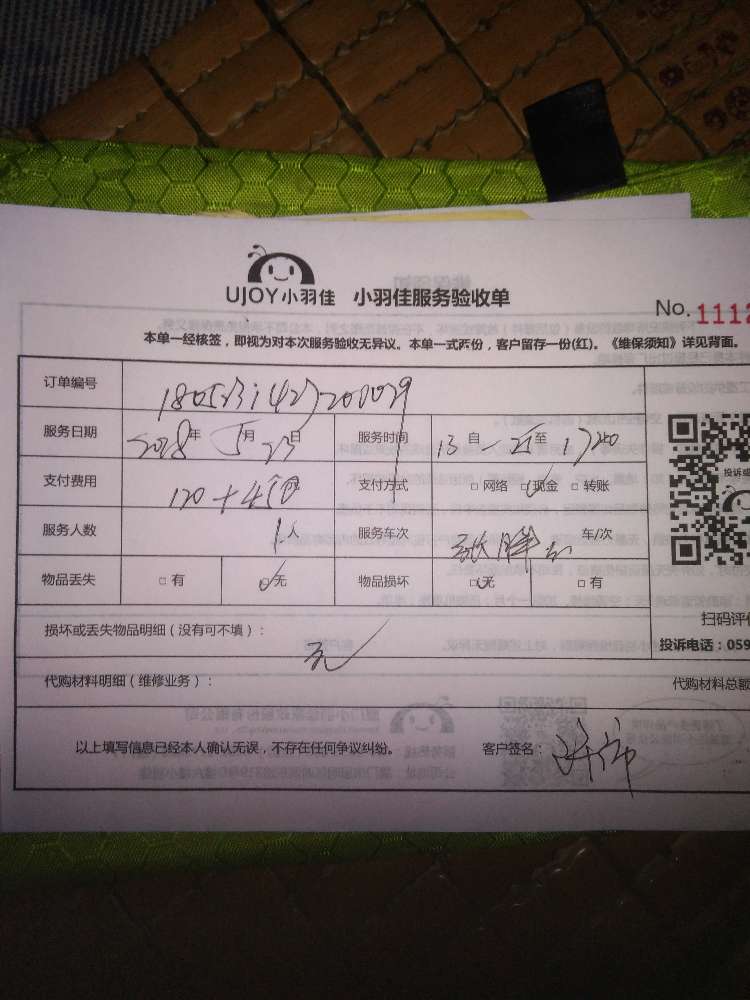 UJOY小羽佳 小羽佳服务验收单
No. 1112
本单一经核签，即视为对本次服务验收无异议。本单一式两份，客户留存一份(红)。《维保须知》详见背面。
订单编号
服务日期 2018年 5月 23日 服务时间 13自 — 25至 17 20
支付费用 120+45 支付方式 □ 网络 □ 现金 □ 转账
服务人数 1人 服务车次 车/次
物品丢失 □ 有 □ 无 物品损坏 □ 无 □ 有
投诉或
扫码评价
损坏或丢失物品明细（没有可不填）：
无
投诉电话：059
代购材料明细（维修业务）： 代购材料总额
以上填写信息已经本人确认无误，不存在任何争议纠纷。 客户签名：